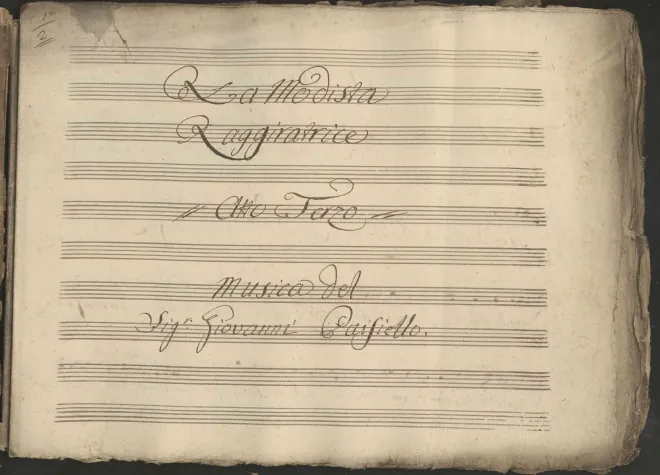 La Modista
Raggiratrice
Atto Terzo
Musica del
Sig.r Giovanni Paisiello.